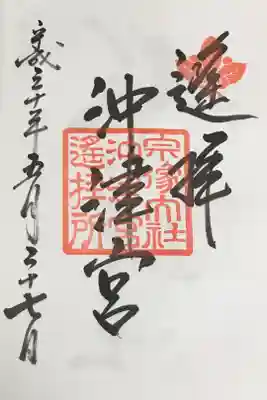 遙拝
沖津宮
宗像大社
沖津宮
遙拝所
平成三十年五月二十七日